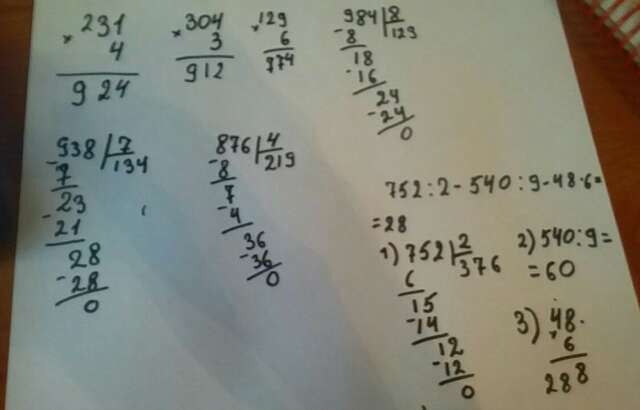 × 231 × 304 × 129 984 | 8
4 3 6 - 8 | 123
924 912 774 18
- 16
24
- 24
0
- 938 | 7 876 | 4
7 | 134 - 8 | 219
23 7
- 21 - 4
28 36
- 28 - 36
0 0
752 : 2 - 540 : 9 - 48 · 6 =
= 28
1) 752 | 2 2) 540 : 9 =
6 | 376 = 60
15
- 14
12
- 12
0
3) 48 ·
× 6
288